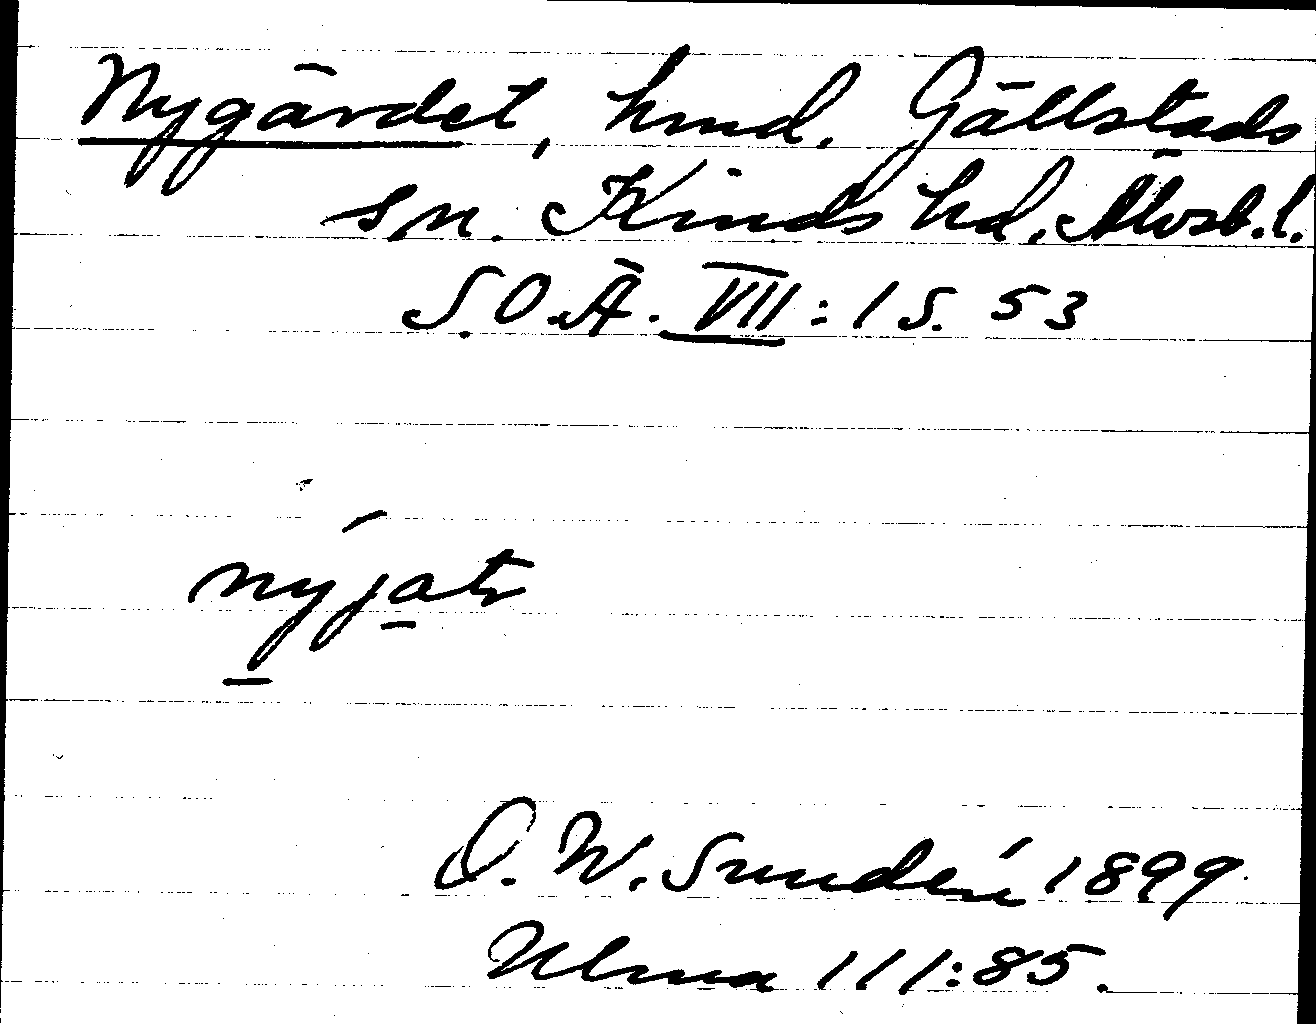 Nygärdet, hmd. Gällstads
sn. Kinds hd, Älvsb. l.
S.O.Ä. VII: 1 S. 53
nýjatr
O. W. Sundén 1899
Ulma 111:85.